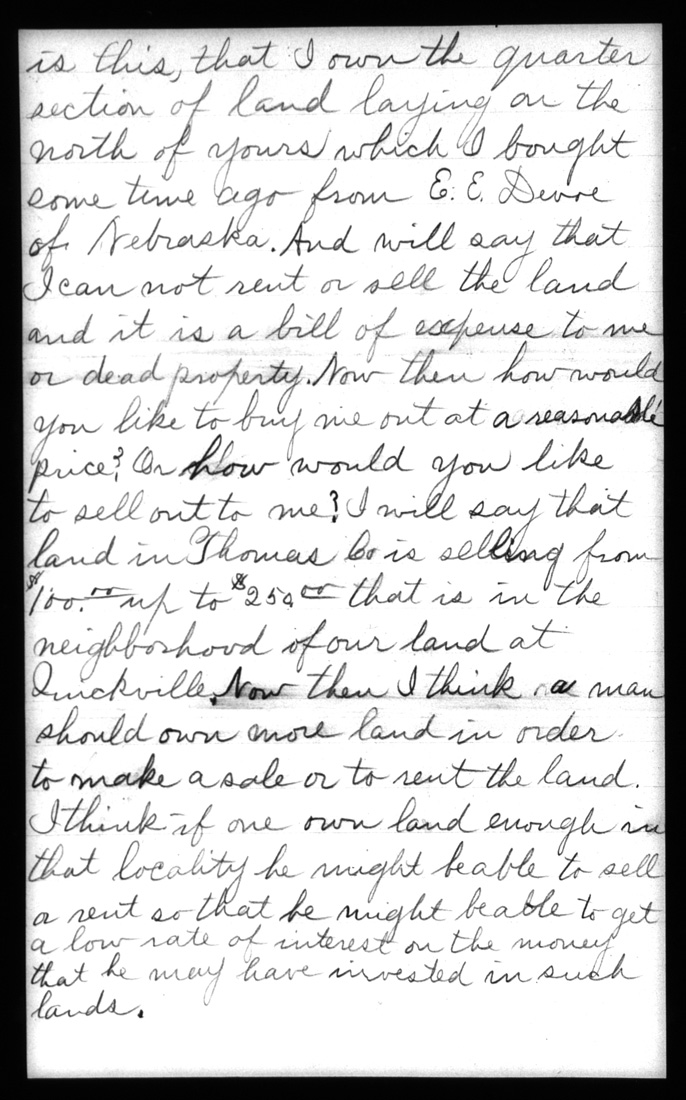 is this, that I own the quarter
section of land laying on the
north of yours which I bought
some time ago from E. E. Devoe
of Nebraska. And will say that
I can not rent or sell the land
and it is a bill of expense to me
or dead property. Now then how would
you like to buy me out at a reasonable
price? Or how would you like
to sell out to me? I will say that
land in Thomas Co is selling from
$100.00 up to $250 00 that is in the
neighborhood of our land at
Quickville. Now then I think a man
should own more land in order
to make a sale or to rent the land.
I think if one own land enough in
that locality he might be able to sell
a rent so that he might be able to get
a low rate of interest on the money
that he may have invested in such
lands.